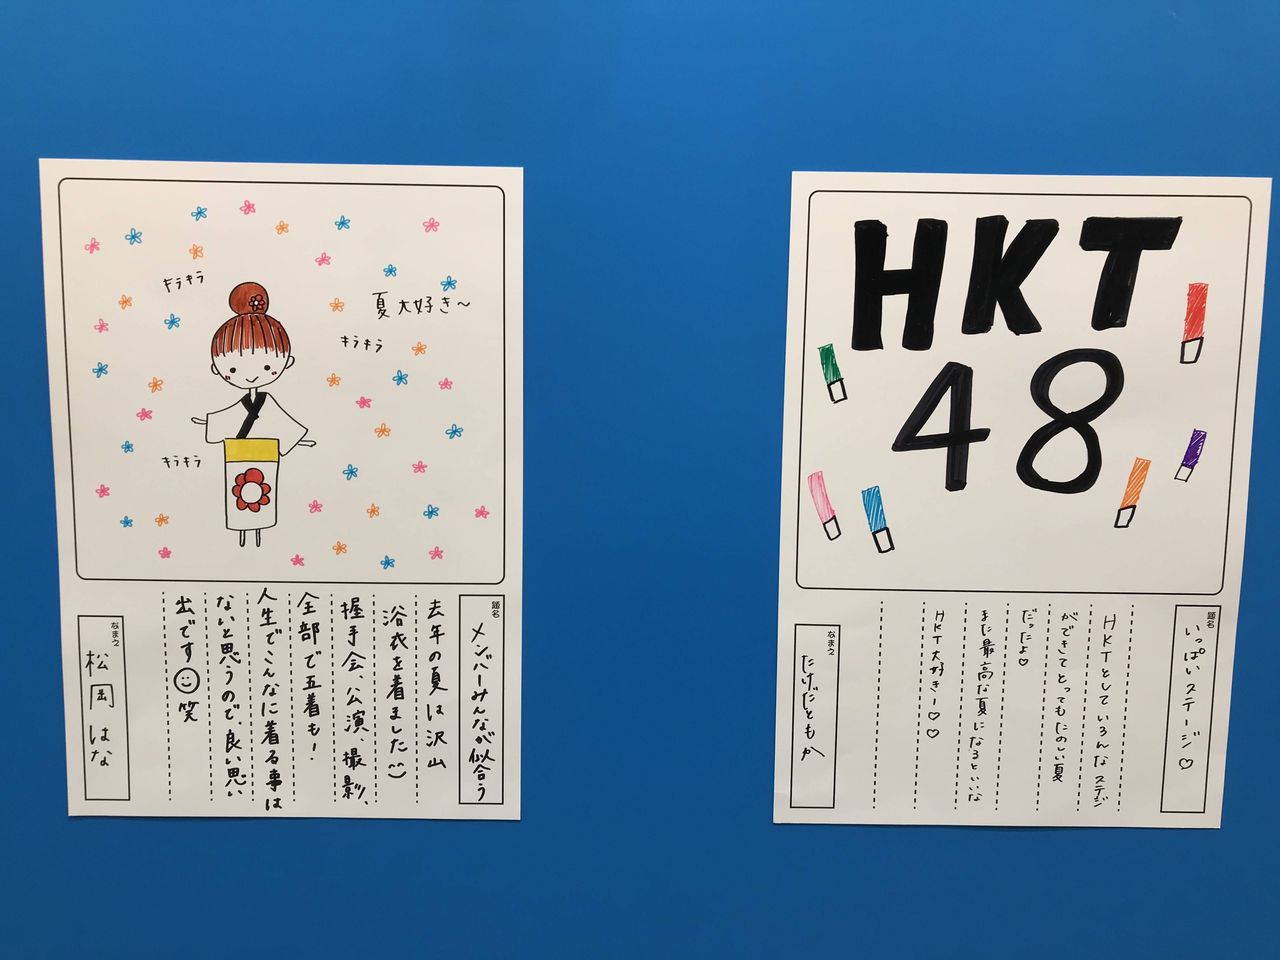 キラキラ
夏大好き〜
キラキラ
キラキラ
題名
メンバーみんなが似合う
去年の夏は沢山
浴衣を着ました
握手会、公演、撮影、
全部で五着も!
人生でこんなに着る事は
ないと思うので、良い思い
出です 笑
なまえ
松岡はな
HKT
48
題名
いっぱいステージ♡
HKTとしていろんなステジ
ができてとってもたのしい夏
だったよ♡
また最高な夏になるといいな
HKT大好きー♡♡
なまえ
たけだともか